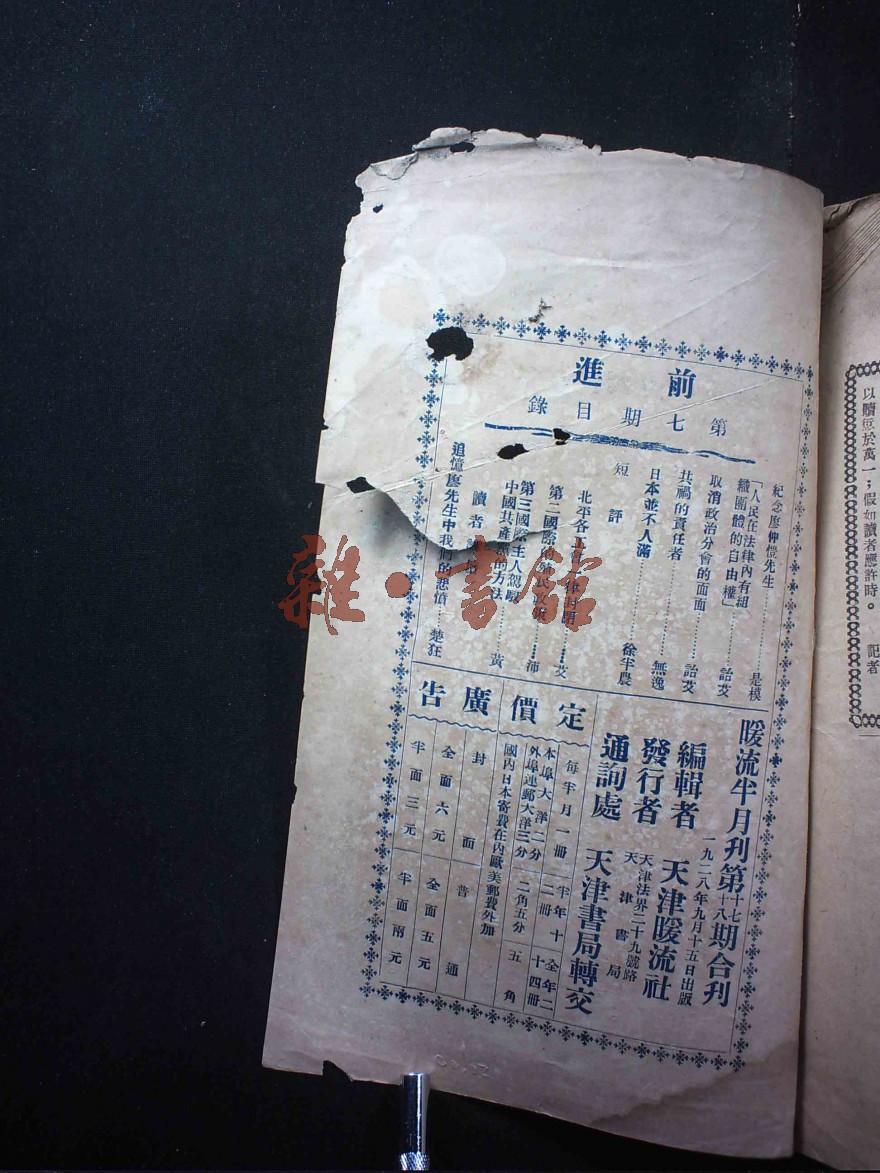 前進
第七期目錄
紀念廖仲愷先生………是模
「人民在法律內有組
織團體的自由權」………詒艾
取消政治分會的面面………詒艾
共禍的責任者………無逸
日本並不人滿………徐半農
短評
北平各
第二國際
第三國際主人駕駛
中國共產黨的方法………黃
讀者
追憶廖先生中我們的悲憤………楚狂
暖流半月刊第十七十八期合刊
一九二八年九月十五日出版
編輯者 天津暖流社
發行者 天津法界二十九號路
天津書局
通詢處 天津書局轉交
定價
每半月一冊 半年十二冊 全年二十四冊
本埠大洋二分
外埠連郵大洋三分 二角五分 五角
國內日本寄費在內歐美郵費外加
廣告
封面 普通
全面六元 全面五元
半面三元 半面兩元
以贖愆於萬一；假如讀者應許時。
記者
雜·書館